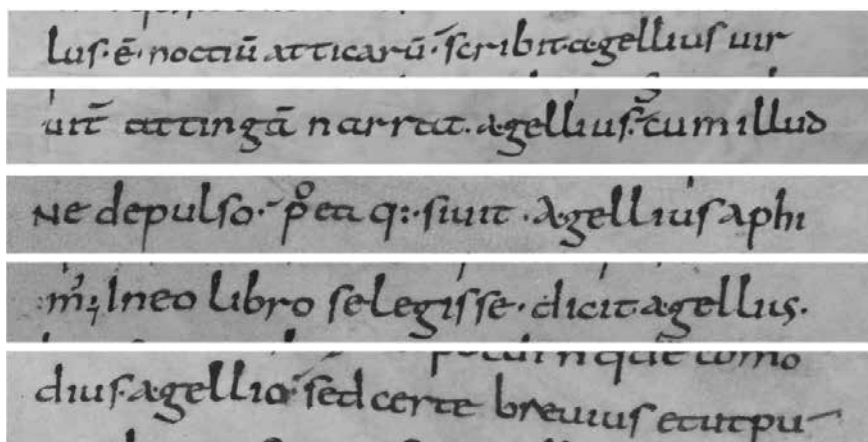 lus·ē·noctiū atticarū·scribit·agellius uir
uit̄ attingā narrat·agellius·cum illud
Ne depulso·p̊ea q:·siuit·A·gellius aphi
lneo libro selegisse·dicit agellus·
dius·agellio sed certe breuius etutpu